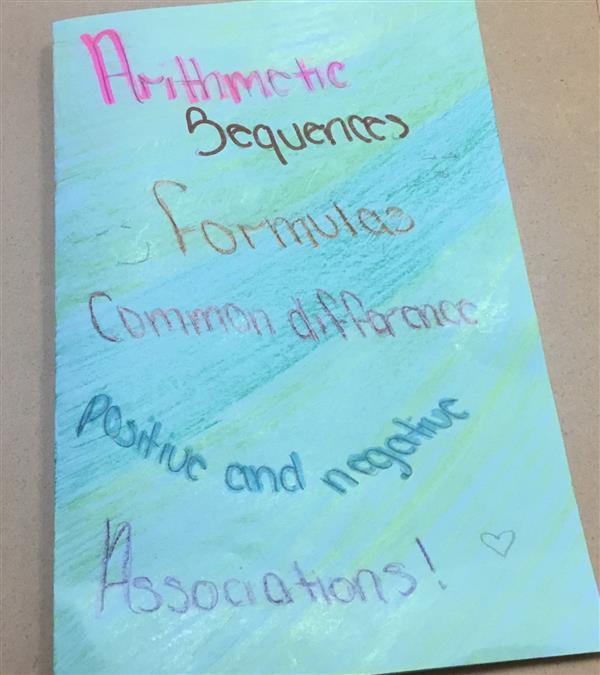 Arithmetic
Sequences
formulas
Common difference
positive and negative
Associations!